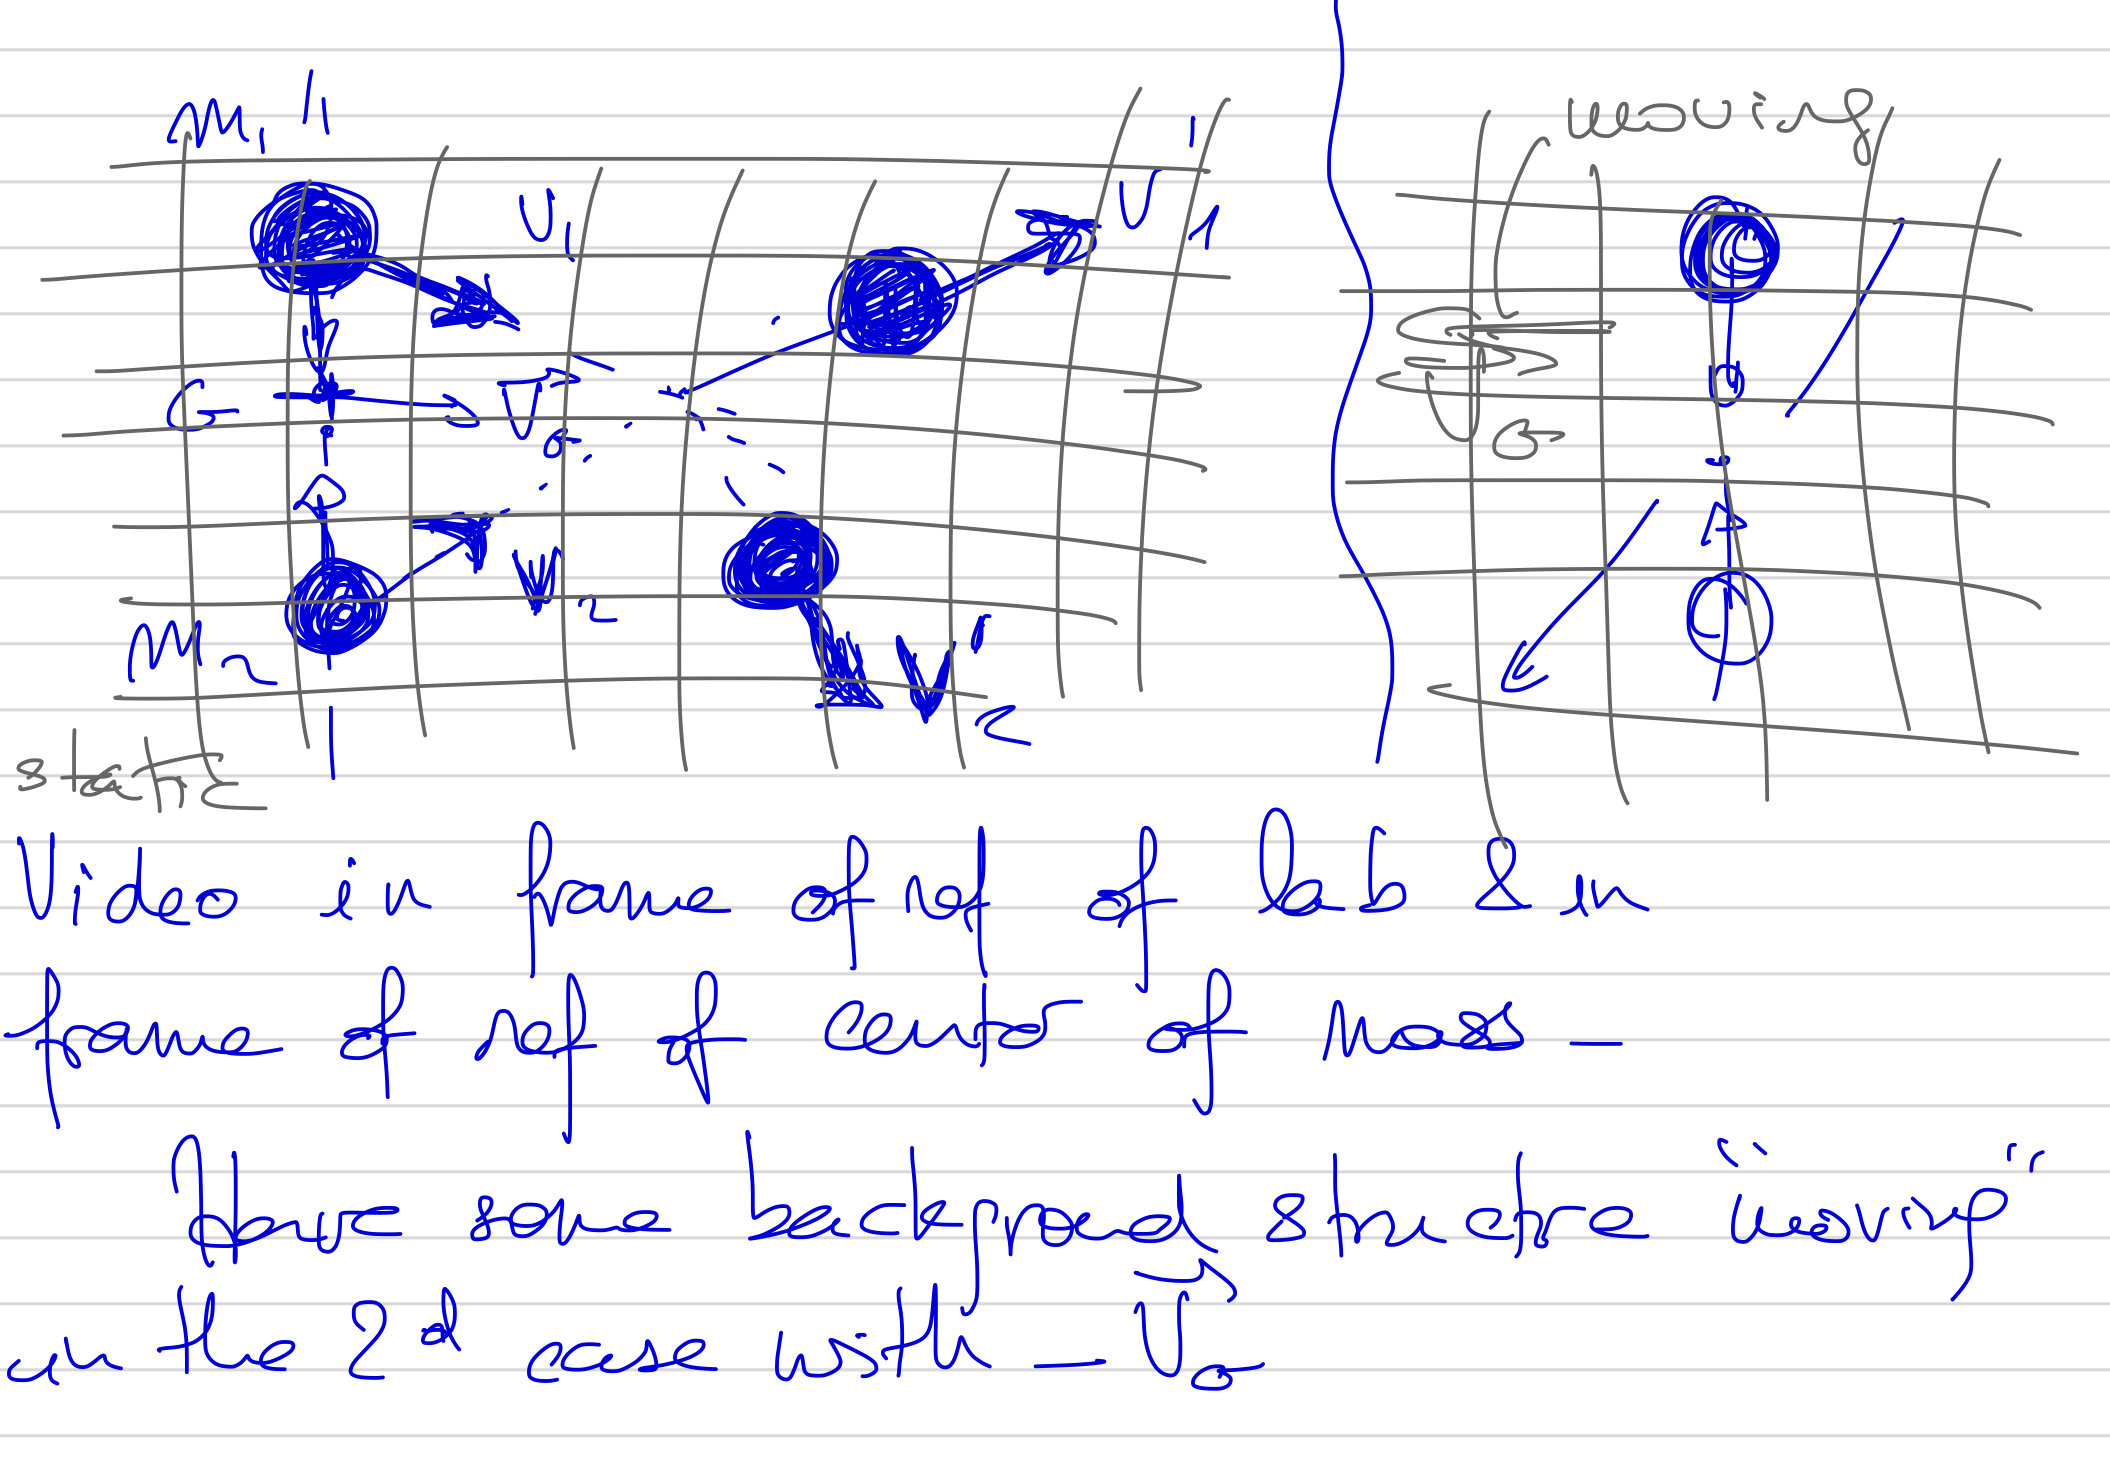 moving
m₁
U₁
U'₁
G
V_G
V_G
W₂
m₂
W'₂
static
Video in frame of ref of lab & in
frame of ref of center of mass –
Have some background structre "moving"
in the 2d case with – V_G